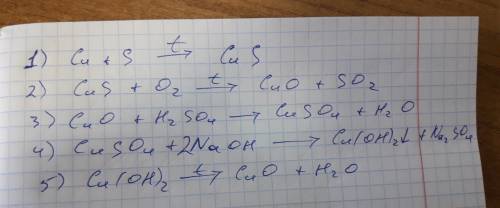 1) Cu + S —t→ CuS
2) CuS + O₂ —t→ CuO + SO₂
3) CuO + H₂SO₄ → CuSO₄ + H₂O
4) CuSO₄ + 2NaOH → Cu(OH)₂↓ + Na₂SO₄
5) Cu(OH)₂ —t→ CuO + H₂O